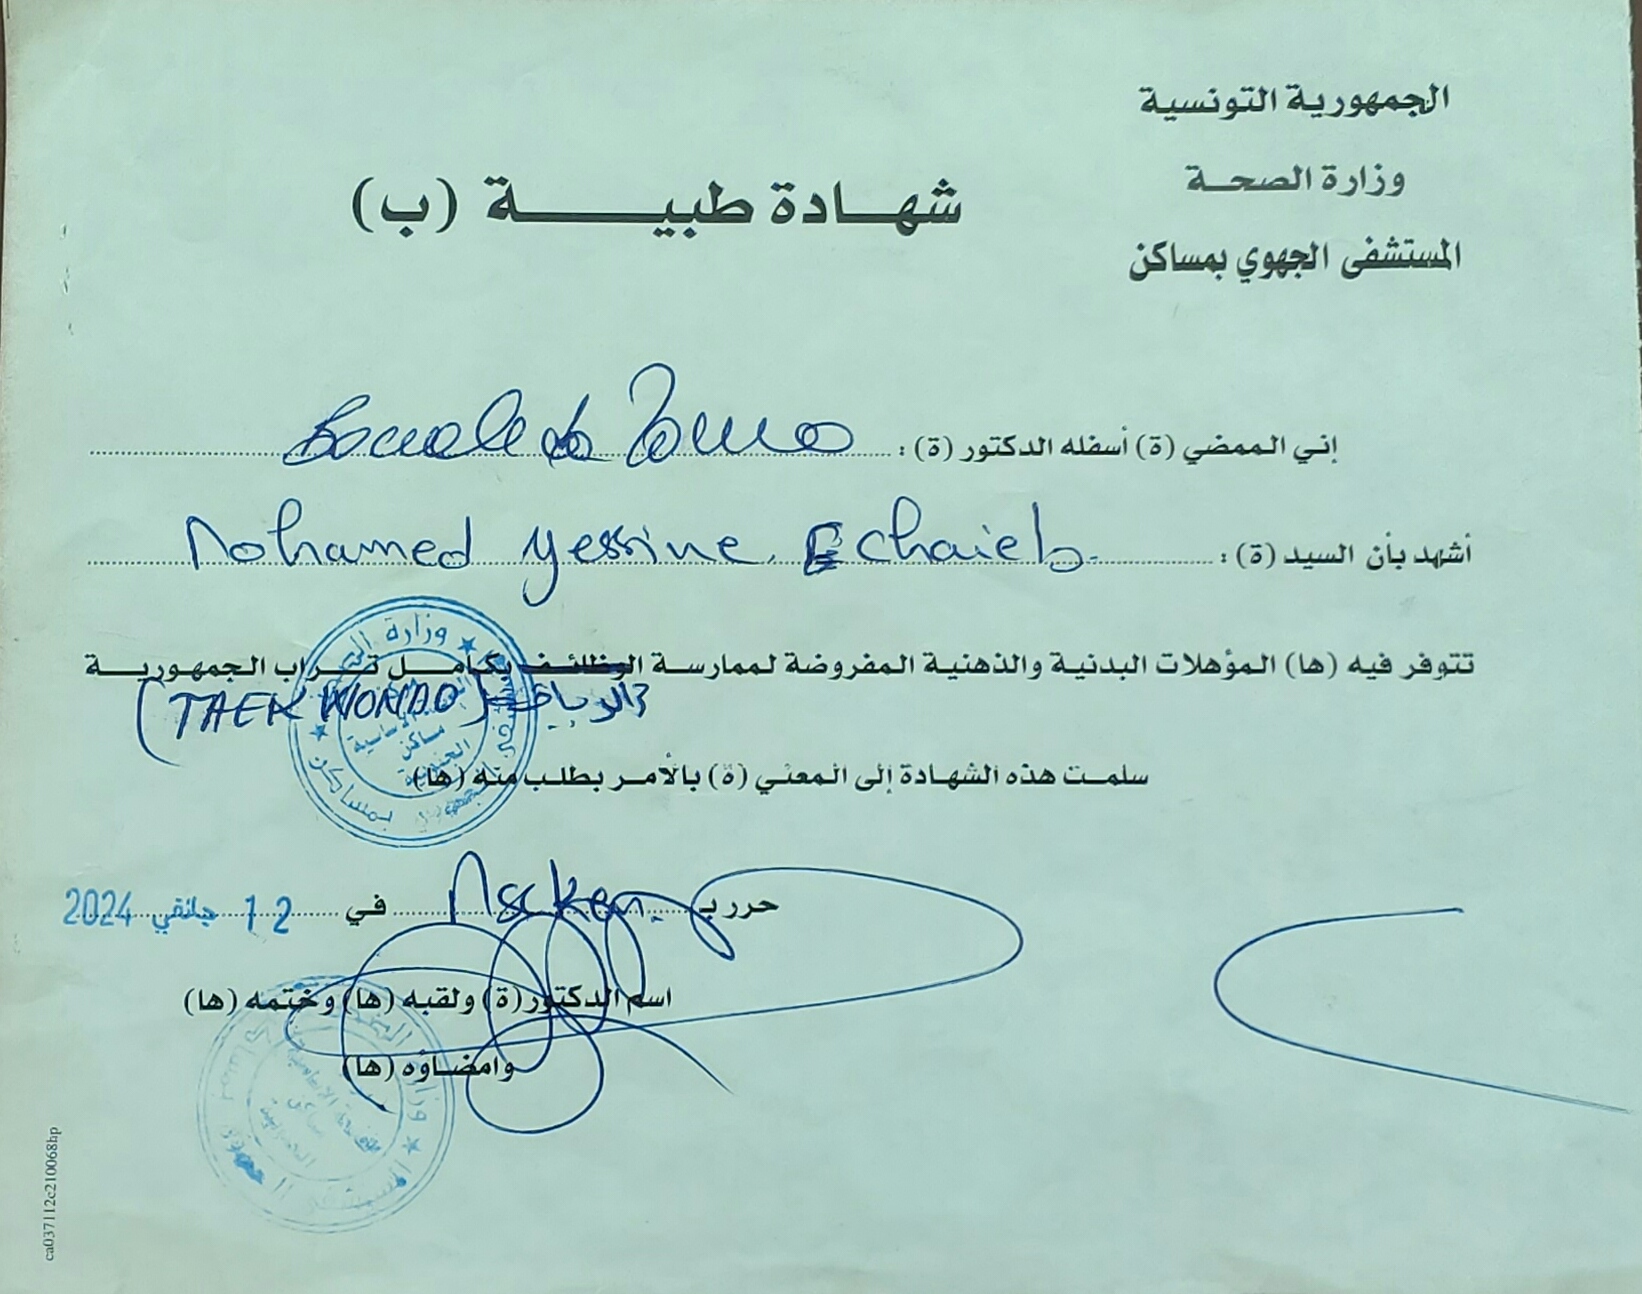 الجمهورية التونسية
وزارة الصحة
المستشفى الجهوي بمساكن
شهادة طبية (ب)
إني الممضي (ة) أسفله الدكتور (ة) :
أشهد بأن السيد (ة) : Mohamed Yessine Echaieb
تتوفر فيه (ها) المؤهلات البدنية والذهنية المفروضة لممارسة الوظائف بكامل تراب الجمهورية
(TAEKWONDO)
سلمت هذه الشهادة إلى المعني (ة) بالأمر بطلب منه (ها)
حرر بـ في 12 جانفي 2024
اسم الدكتور (ة) ولقبه (ها) وختمه (ها)
وامضاؤه (ها)
ca037112c210068hp